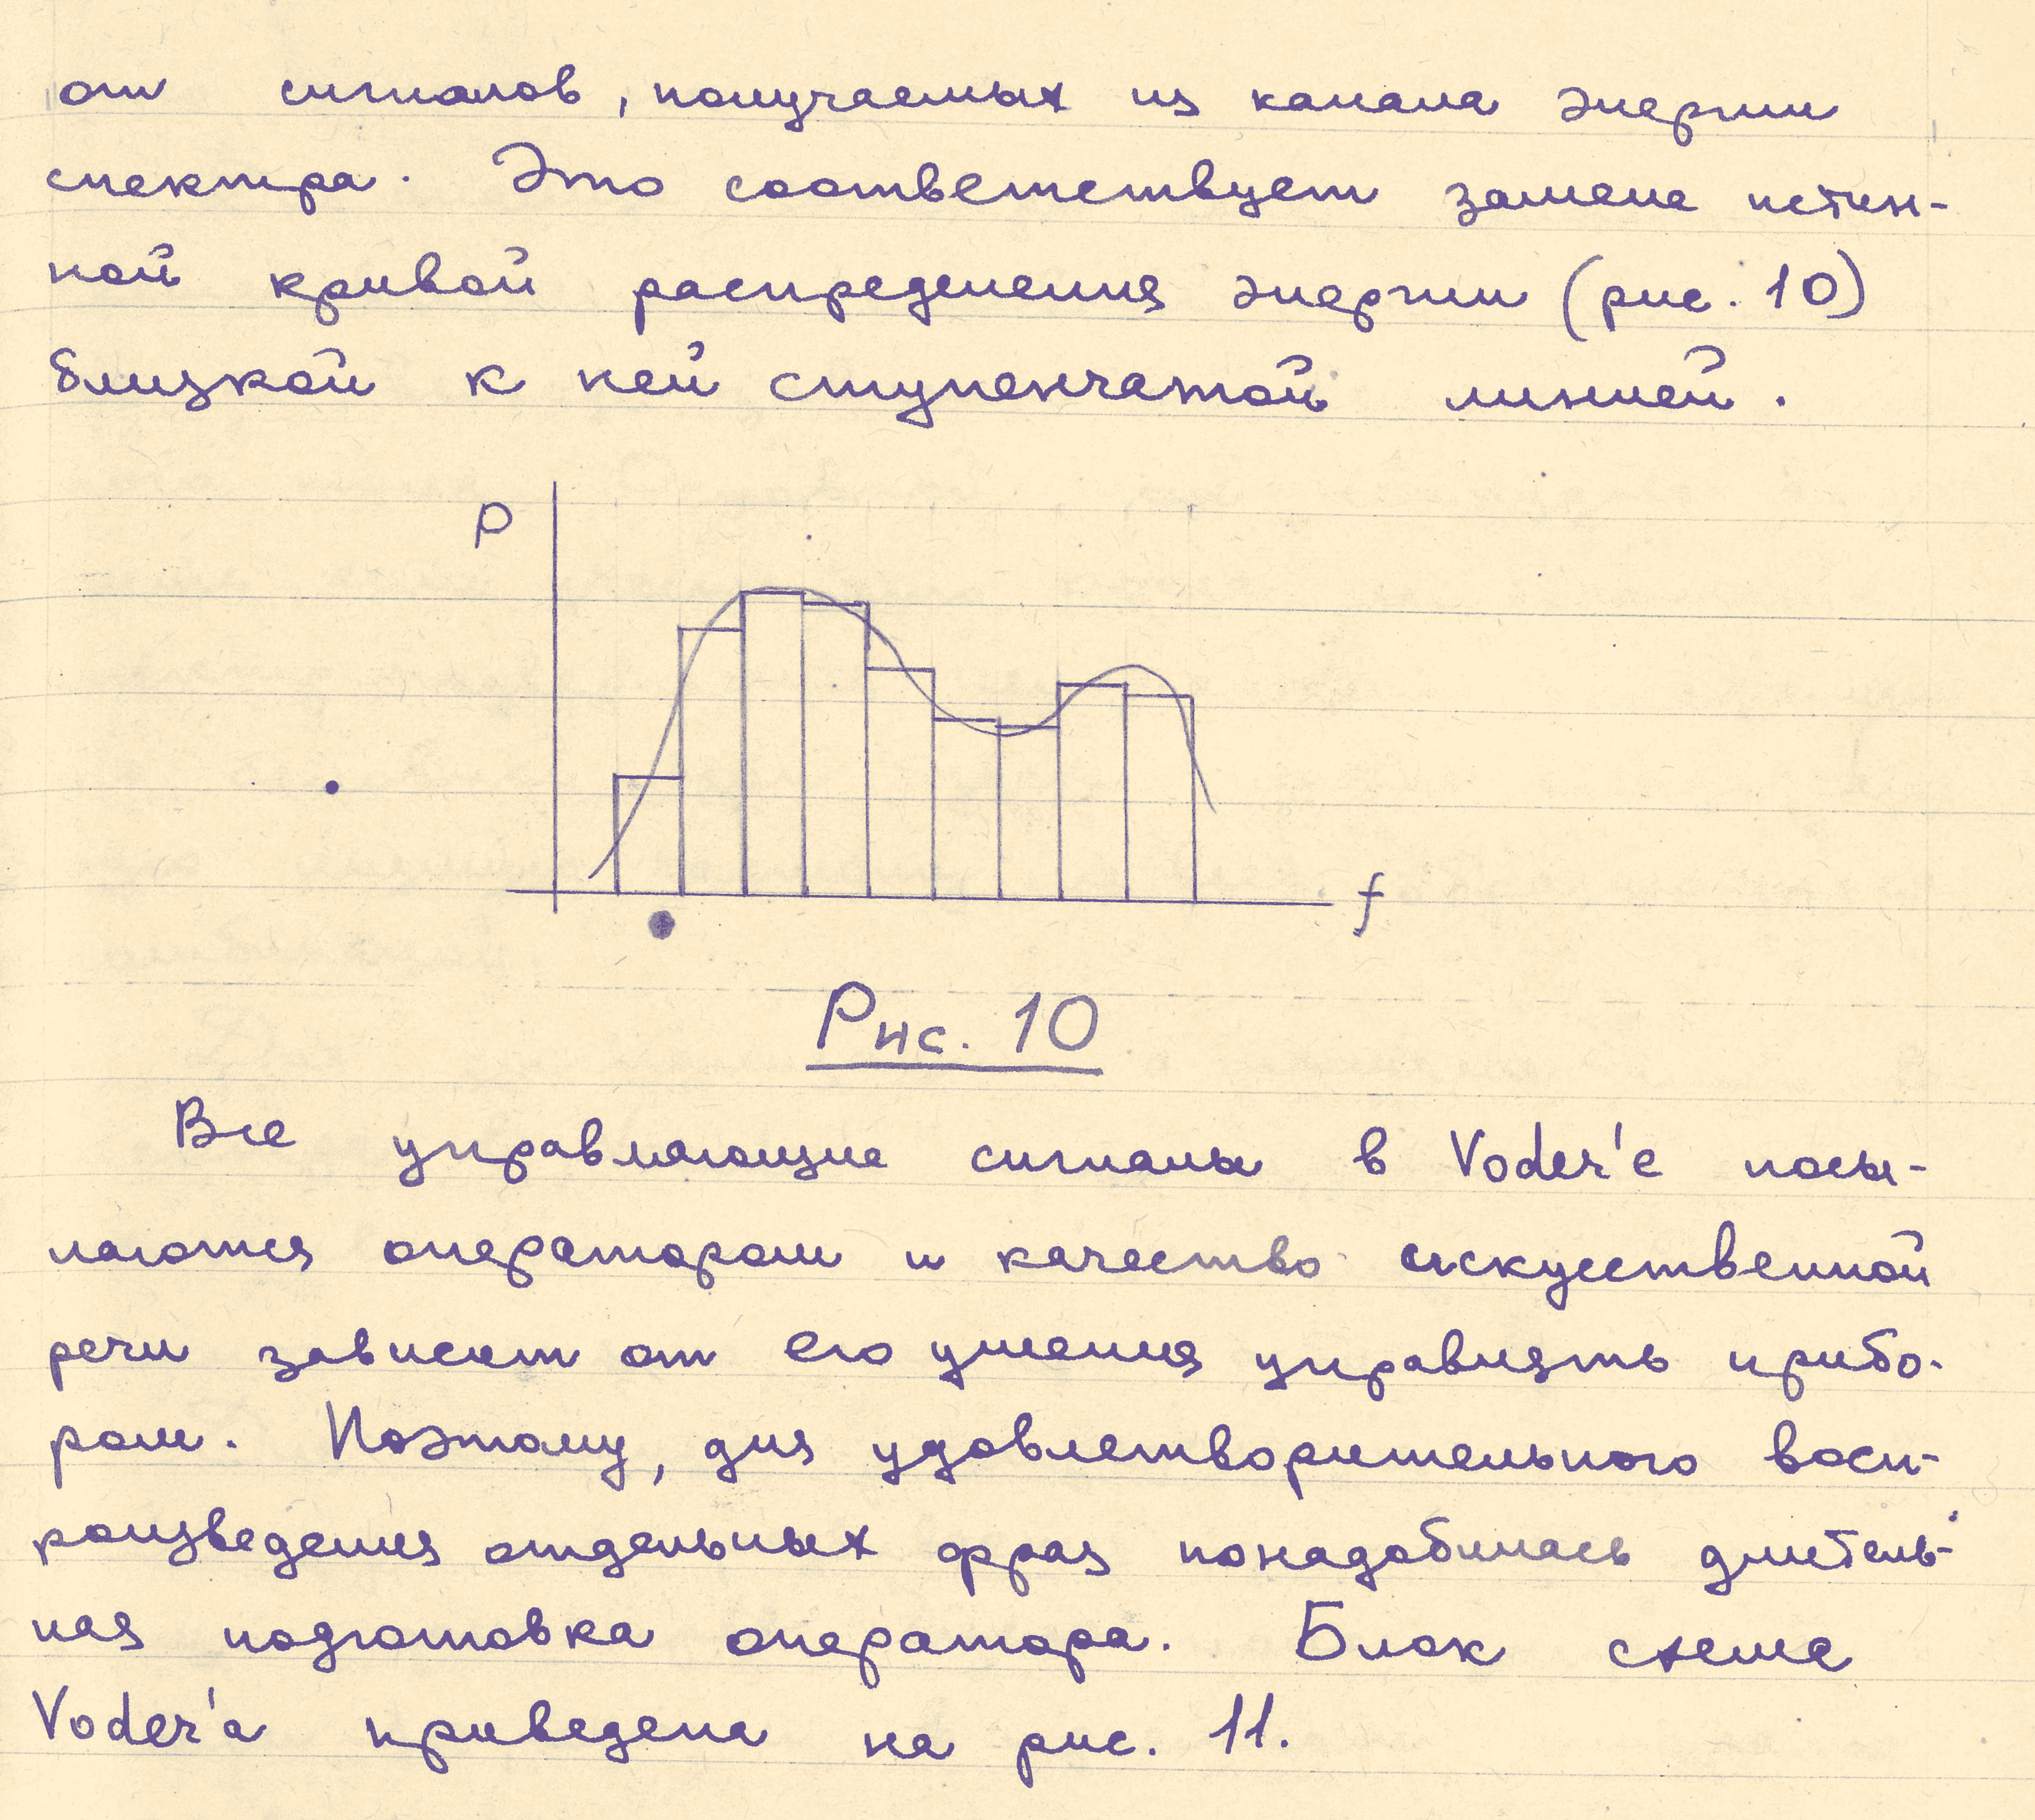 от сигналов, получаемых из канала энергии
спектра. Это соответствует замене истин-
ной кривой распределения энергии (рис. 10)
близкой к ней ступенчатой линией.
P
f
Рис. 10
Все управляющие сигналы в Voder'е посы-
лаются оператором и качество искусственной
речи зависит от его умения управлять прибо-
ром. Поэтому, для удовлетворительного восп-
роизведения отдельных фраз понадобилась длитель-
ная подготовка оператора. Блок схема
Voder'а приведена на рис. 11.